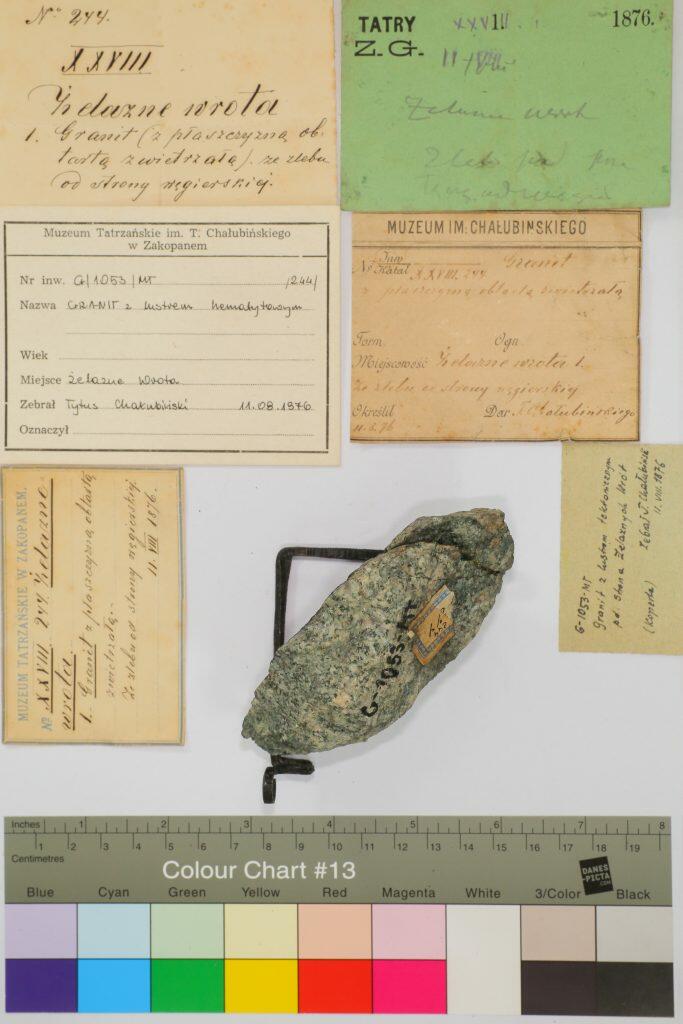 Nº 244.
XXVIII
Żelazne wrota
1. Granit (z płaszczyzną ob-
tartą zwietrzałą). ze źlebu
od strony węgierskiej.
TATRY XXVIII. 1876.
Z. G. II
Żelazne
Źleb
MUZEUM IM. CHAŁUBIŃSKIEGO
Nº Inw. Katal XXVIII. 244 Granit
z płaszczyzną obtartą zwietrzałą
Form. Ogn
Miejscowość Żelazne wrota 1.
Ze źlebu ze strony węgierskiej
Określił Dar T. Chałubińskiego
11.8.76
Muzeum Tatrzańskie im. T. Chałubińskiego
w Zakopanem
Nr inw. G/1053/MT /244/
Nazwa GRANIT z lustrem hematytowym
Wiek
Miejsce Żelazne Wrota
Zebrał Tytus Chałubiński 11.08.1876
Oznaczył
MUZEUM TATRZAŃSKIE W ZAKOPANEM.
Nº XXVIII. 244. Żelazne
wrota.
1. Granit z płaszczyzną obtartą
zwietrzałą.
Ze źlebu od strony węgierskiej.
11 VIII 1876.
G-1053-MT
Granit z lustrem tektonicznym
pd. strona Żelaznych Wrót
Zebrał T. Chałubiński
(Koperta) 11. VIII. 1876
244
G-1053-MT
Inches 1 2 3 4 5 6 7 8
Centimetres 1 2 3 4 5 6 7 8 9 10 11 12 13 14 15 16 17 18 19
Colour Chart #13
DANES-PICTA.COM
Blue Cyan Green Yellow Red Magenta White 3/Color Black